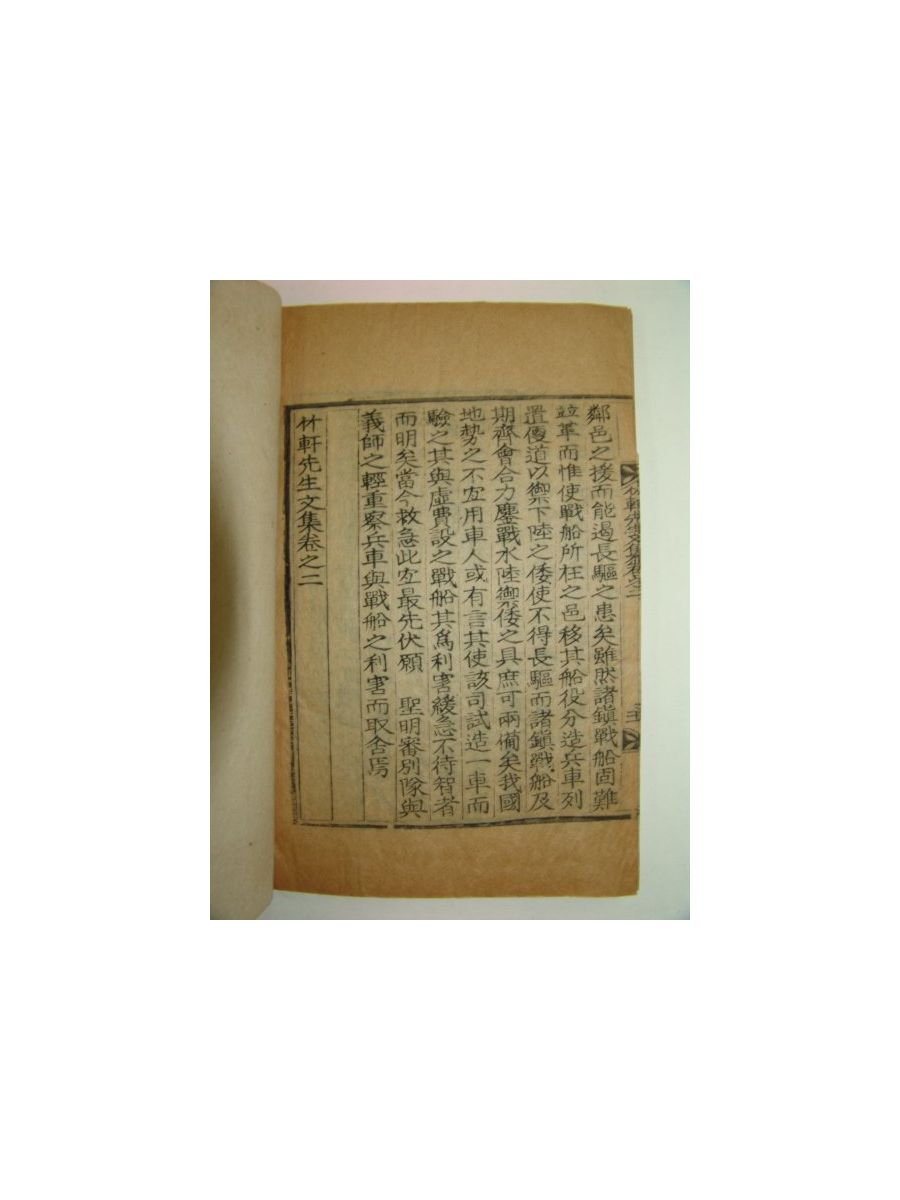 鄰邑之援而能遏長驅之患矣雖然諸鎭戰船固難
竝革而惟使戰船所在之邑移其船役分造兵車列
置便道以禦下陸之倭使不得長驅而諸鎭戰船及
期齊會合力鏖戰水陸禦倭之具庶可兩備矣我國
地勢之不宜用車人或有言其使該司試造一車而
驗之其與虛費設之戰船其爲利害緩急不待智者
而明矣當今救急此宜最先伏願　聖明審別隊與
義師之輕重察兵車與戰船之利害而取舍焉
竹軒先生文集卷之二
竹軒先生文集卷之二